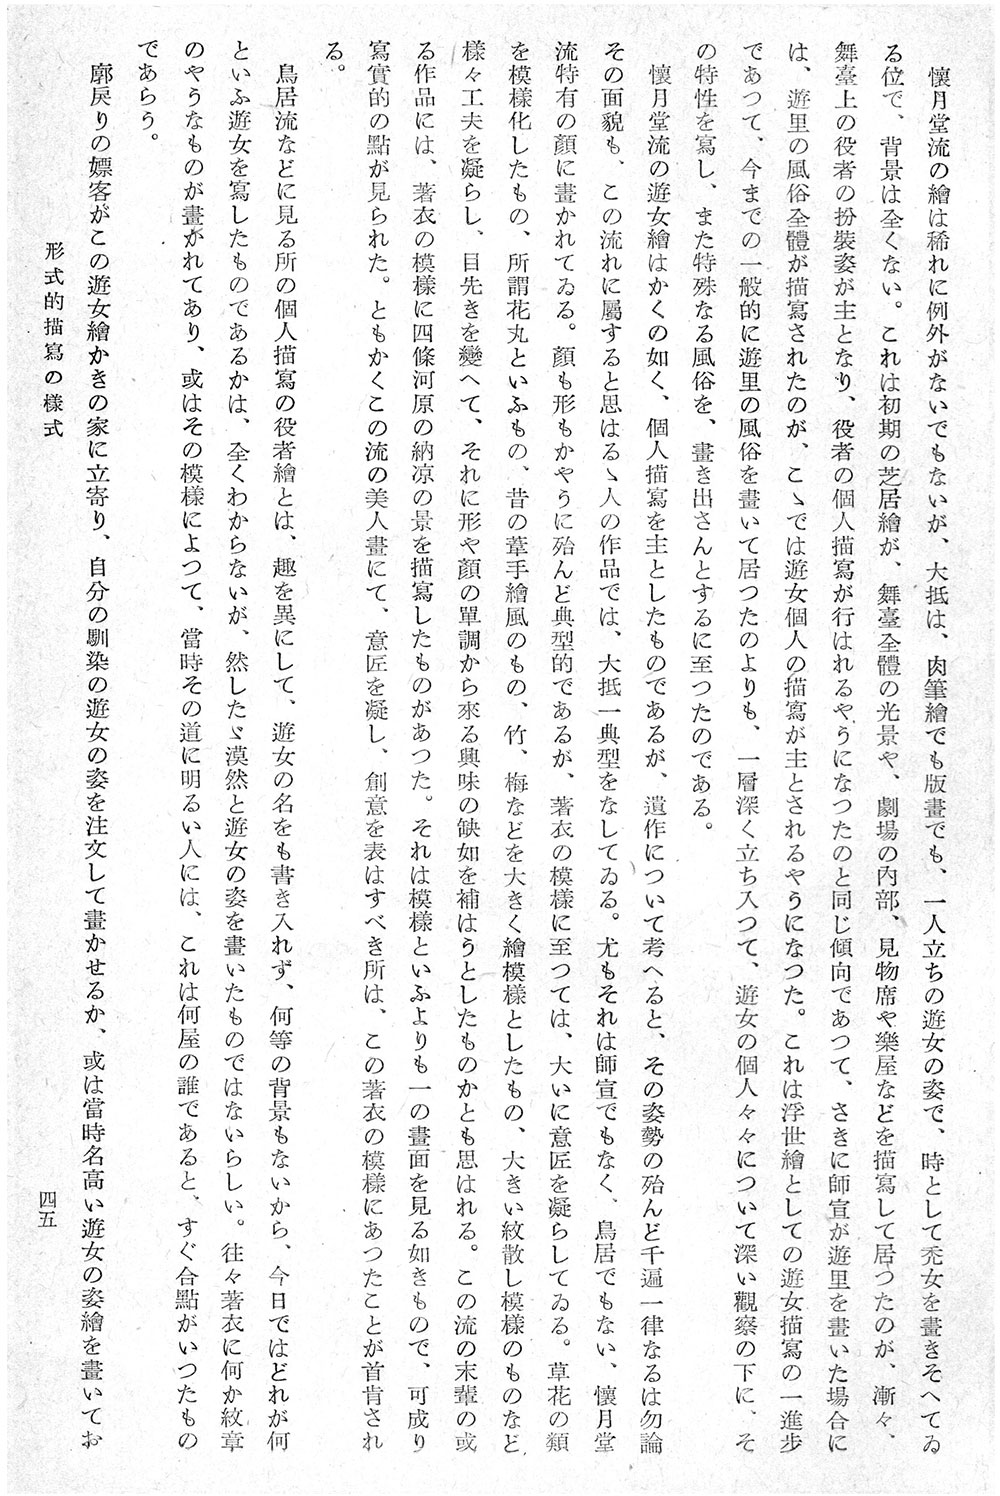 懷月堂流の繪は稀れに例外がないでもないが、大抵は、肉筆繪でも版畫でも、一人立ちの遊女の姿で、時として禿女を畫きそへてゐ
る位で、背景は全くない。これは初期の芝居繪が、舞臺全體の光景や、劇場の內部、見物席や樂屋などを描寫して居つたのが、漸々、
舞臺上の役者の扮裝姿が主となり、役者の個人描寫が行はれるやうになつたのと同じ傾向であつて、さきに師宣が遊里を畫いた場合に
は、遊里の風俗全體が描寫されたのが、こゝでは遊女個人の描寫が主とされるやうになつた。これは浮世繪としての遊女描寫の一進步
であつて、今までの一般的に遊里の風俗を畫いて居つたのよりも、一層深く立ち入つて、遊女の個人々々について深い觀察の下に、そ
の特性を寫し、また特殊なる風俗を、畫き出さんとするに至つたのである。
懷月堂流の遊女繪はかくの如く、個人描寫を主としたものであるが、遺作について考へると、その姿勢の殆んど千遍一律なるは勿論
その面貌も、この流れに屬すると思はるゝ人の作品では、大抵一典型をなしてゐる。尤もそれは師宣でもなく、鳥居でもない、懷月堂
流特有の顏に畫かれてゐる。顏も形もかやうに殆んど典型的であるが、著衣の模樣に至つては、大いに意匠を凝らしてゐる。草花の類
を模樣化したもの、所謂花丸といふもの、昔の葦手繪風のもの、竹、梅などを大きく繪模樣としたもの、大きい紋散し模樣のものなど
樣々工夫を凝らし、目先きを變へて、それに形や顏の單調から來る興味の缺如を補はうとしたものかとも思はれる。この流の末輩の或
る作品には、著衣の模樣に四條河原の納凉の景を描寫したものがあつた。それは模樣といふよりも一の畫面を見る如きもので、可成り
寫實的の點が見られた。ともかくこの流の美人畫にて、意匠を凝し、創意を表はすべき所は、この著衣の模樣にあつたことが首肯され
る。
鳥居流などに見る所の個人描寫の役者繪とは、趣を異にして、遊女の名をも書き入れず、何等の背景もないから、今日ではどれが何
といふ遊女を寫したものであるかは、全くわからないが、然したゞ漠然と遊女の姿を畫いたものではないらしい。往々著衣に何か紋章
のやうなものが畫かれてあり、或はその模樣によつて、當時その道に明るい人には、これは何屋の誰であると、すぐ合點がいつたもの
であらう。
廓戾りの嫖客がこの遊女繪かきの家に立寄り、自分の馴染の遊女の姿を注文して畫かせるか、或は當時名高い遊女の姿繪を畫いてお
形式的描寫の樣式
四五